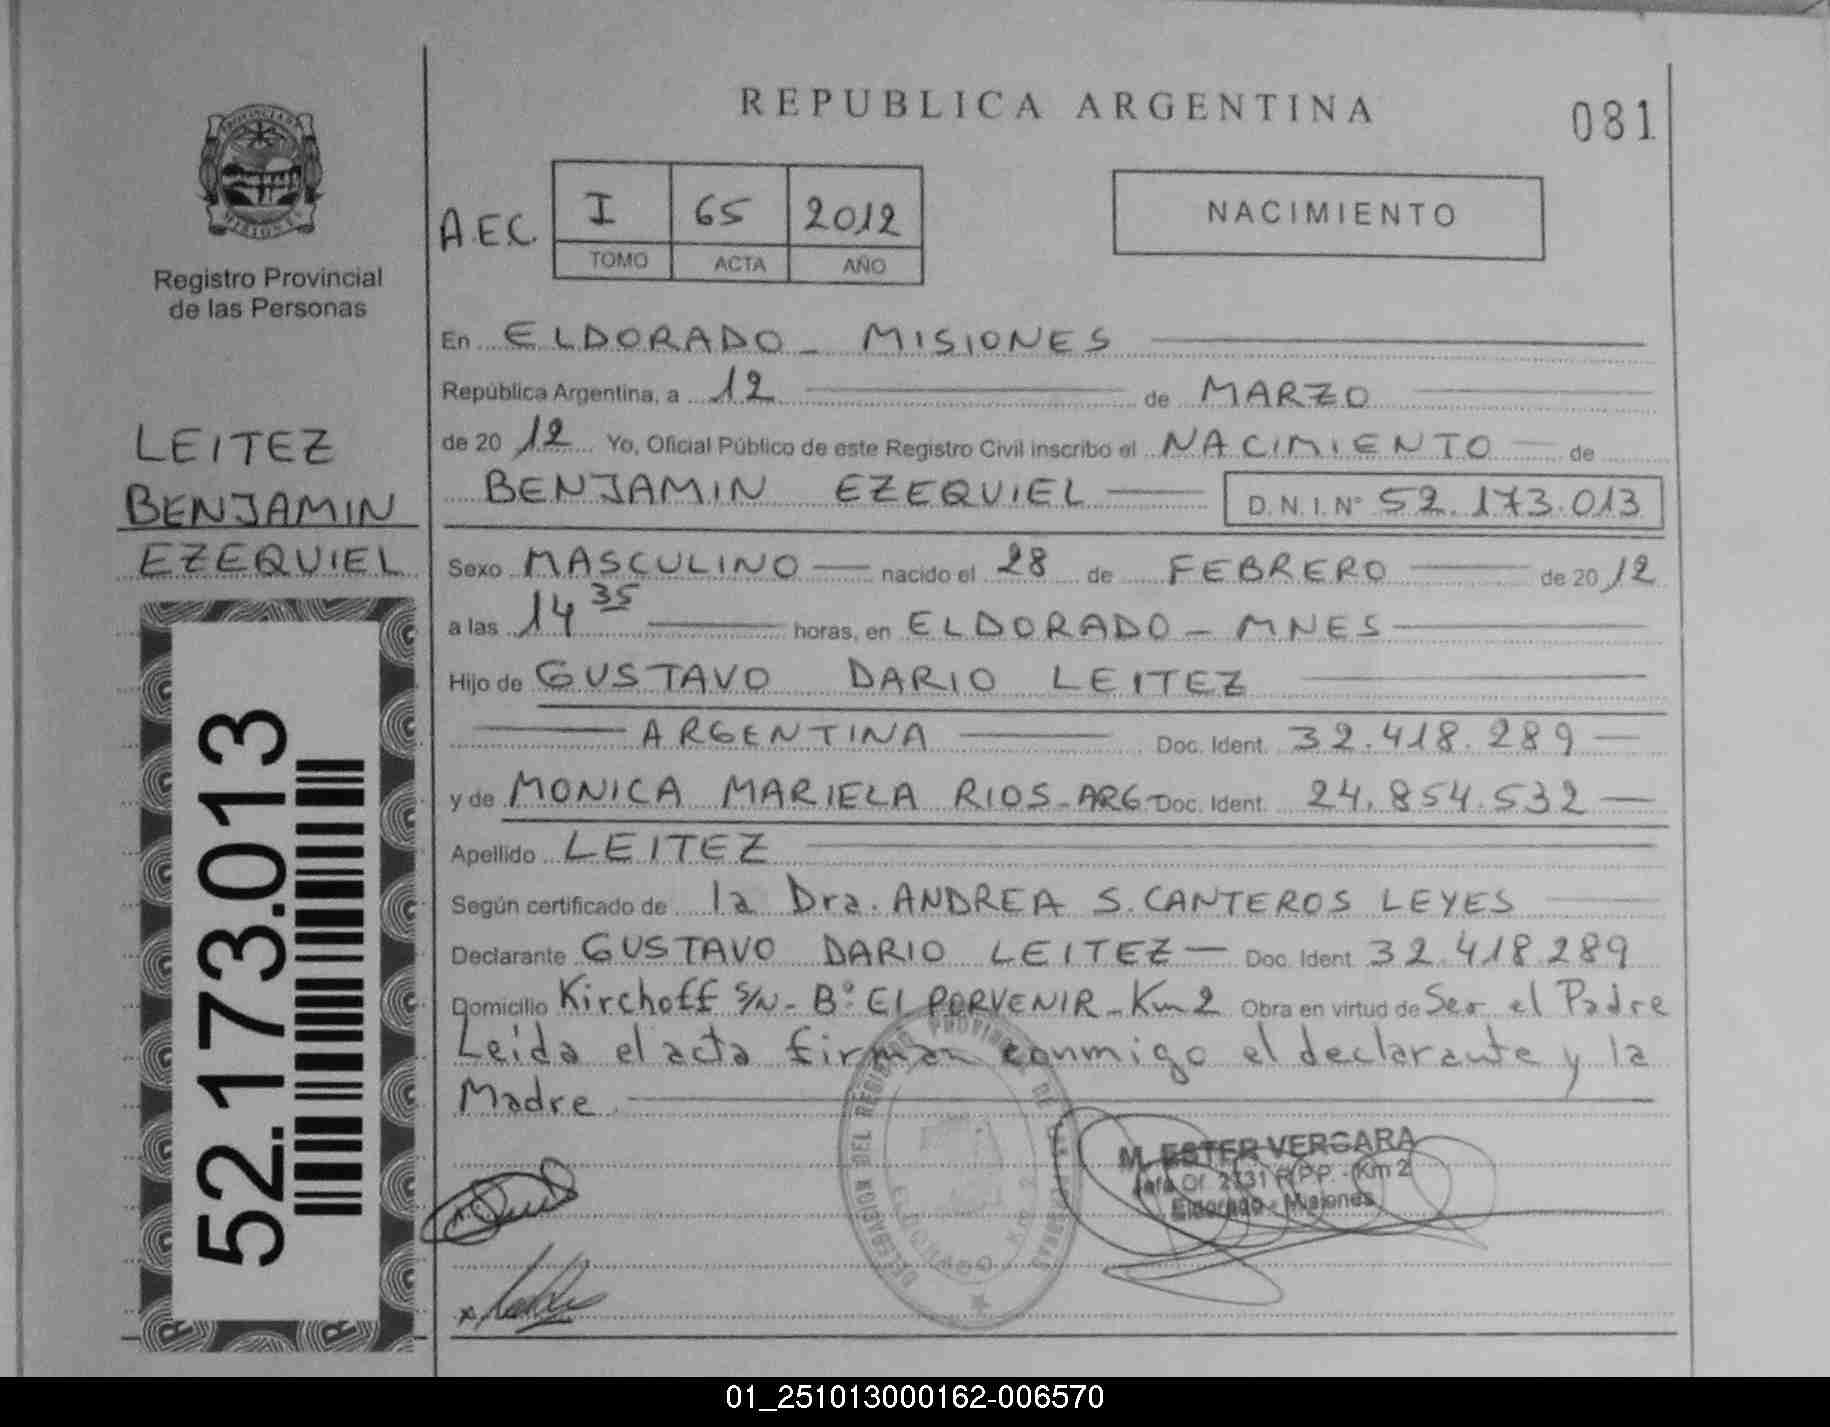 REPUBLICA ARGENTINA
081
PROVINCIA DE
MISIONES
Registro Provincial
de las Personas
A.E.C. I 65 2012
TOMO ACTA AÑO
NACIMIENTO
En ELDORADO - MISIONES
República Argentina, a 12 de MARZO
de 20 12 Yo, Oficial Público de este Registro Civil inscribo el NACIMIENTO de
BENJAMIN EZEQUIEL D.N.I.N° 52.173.013
Sexo MASCULINO nacido el 28 de FEBRERO de 20 12
a las 14 35 horas, en ELDORADO - MNES
Hijo de GUSTAVO DARIO LEITEZ
ARGENTINA Doc. Ident. 32.418.289
y de MONICA MARIELA RIOS - ARG - Doc. Ident. 24.854.532
Apellido LEITEZ
Según certificado de la Dra. ANDREA S. CANTEROS LEYES
Declarante GUSTAVO DARIO LEITEZ Doc. Ident. 32.418.289
Domicilio Kirchoff S/N - B° El PORVENIR - Km 2 Obra en virtud de Ser el Padre
Leida el acta firman conmigo el declarante y la
Madre.
LEITEZ
BENJAMIN
EZEQUIEL
52.173.013
DELEGACION DEL REGISTRO PROVINCIAL DE LAS PERSONAS
ELDORADO KM 2
M. ESTER VERGARA
Jefa Of. 2131 R.P.P. - Km 2
Eldorado - Misiones
01_251013000162-006570